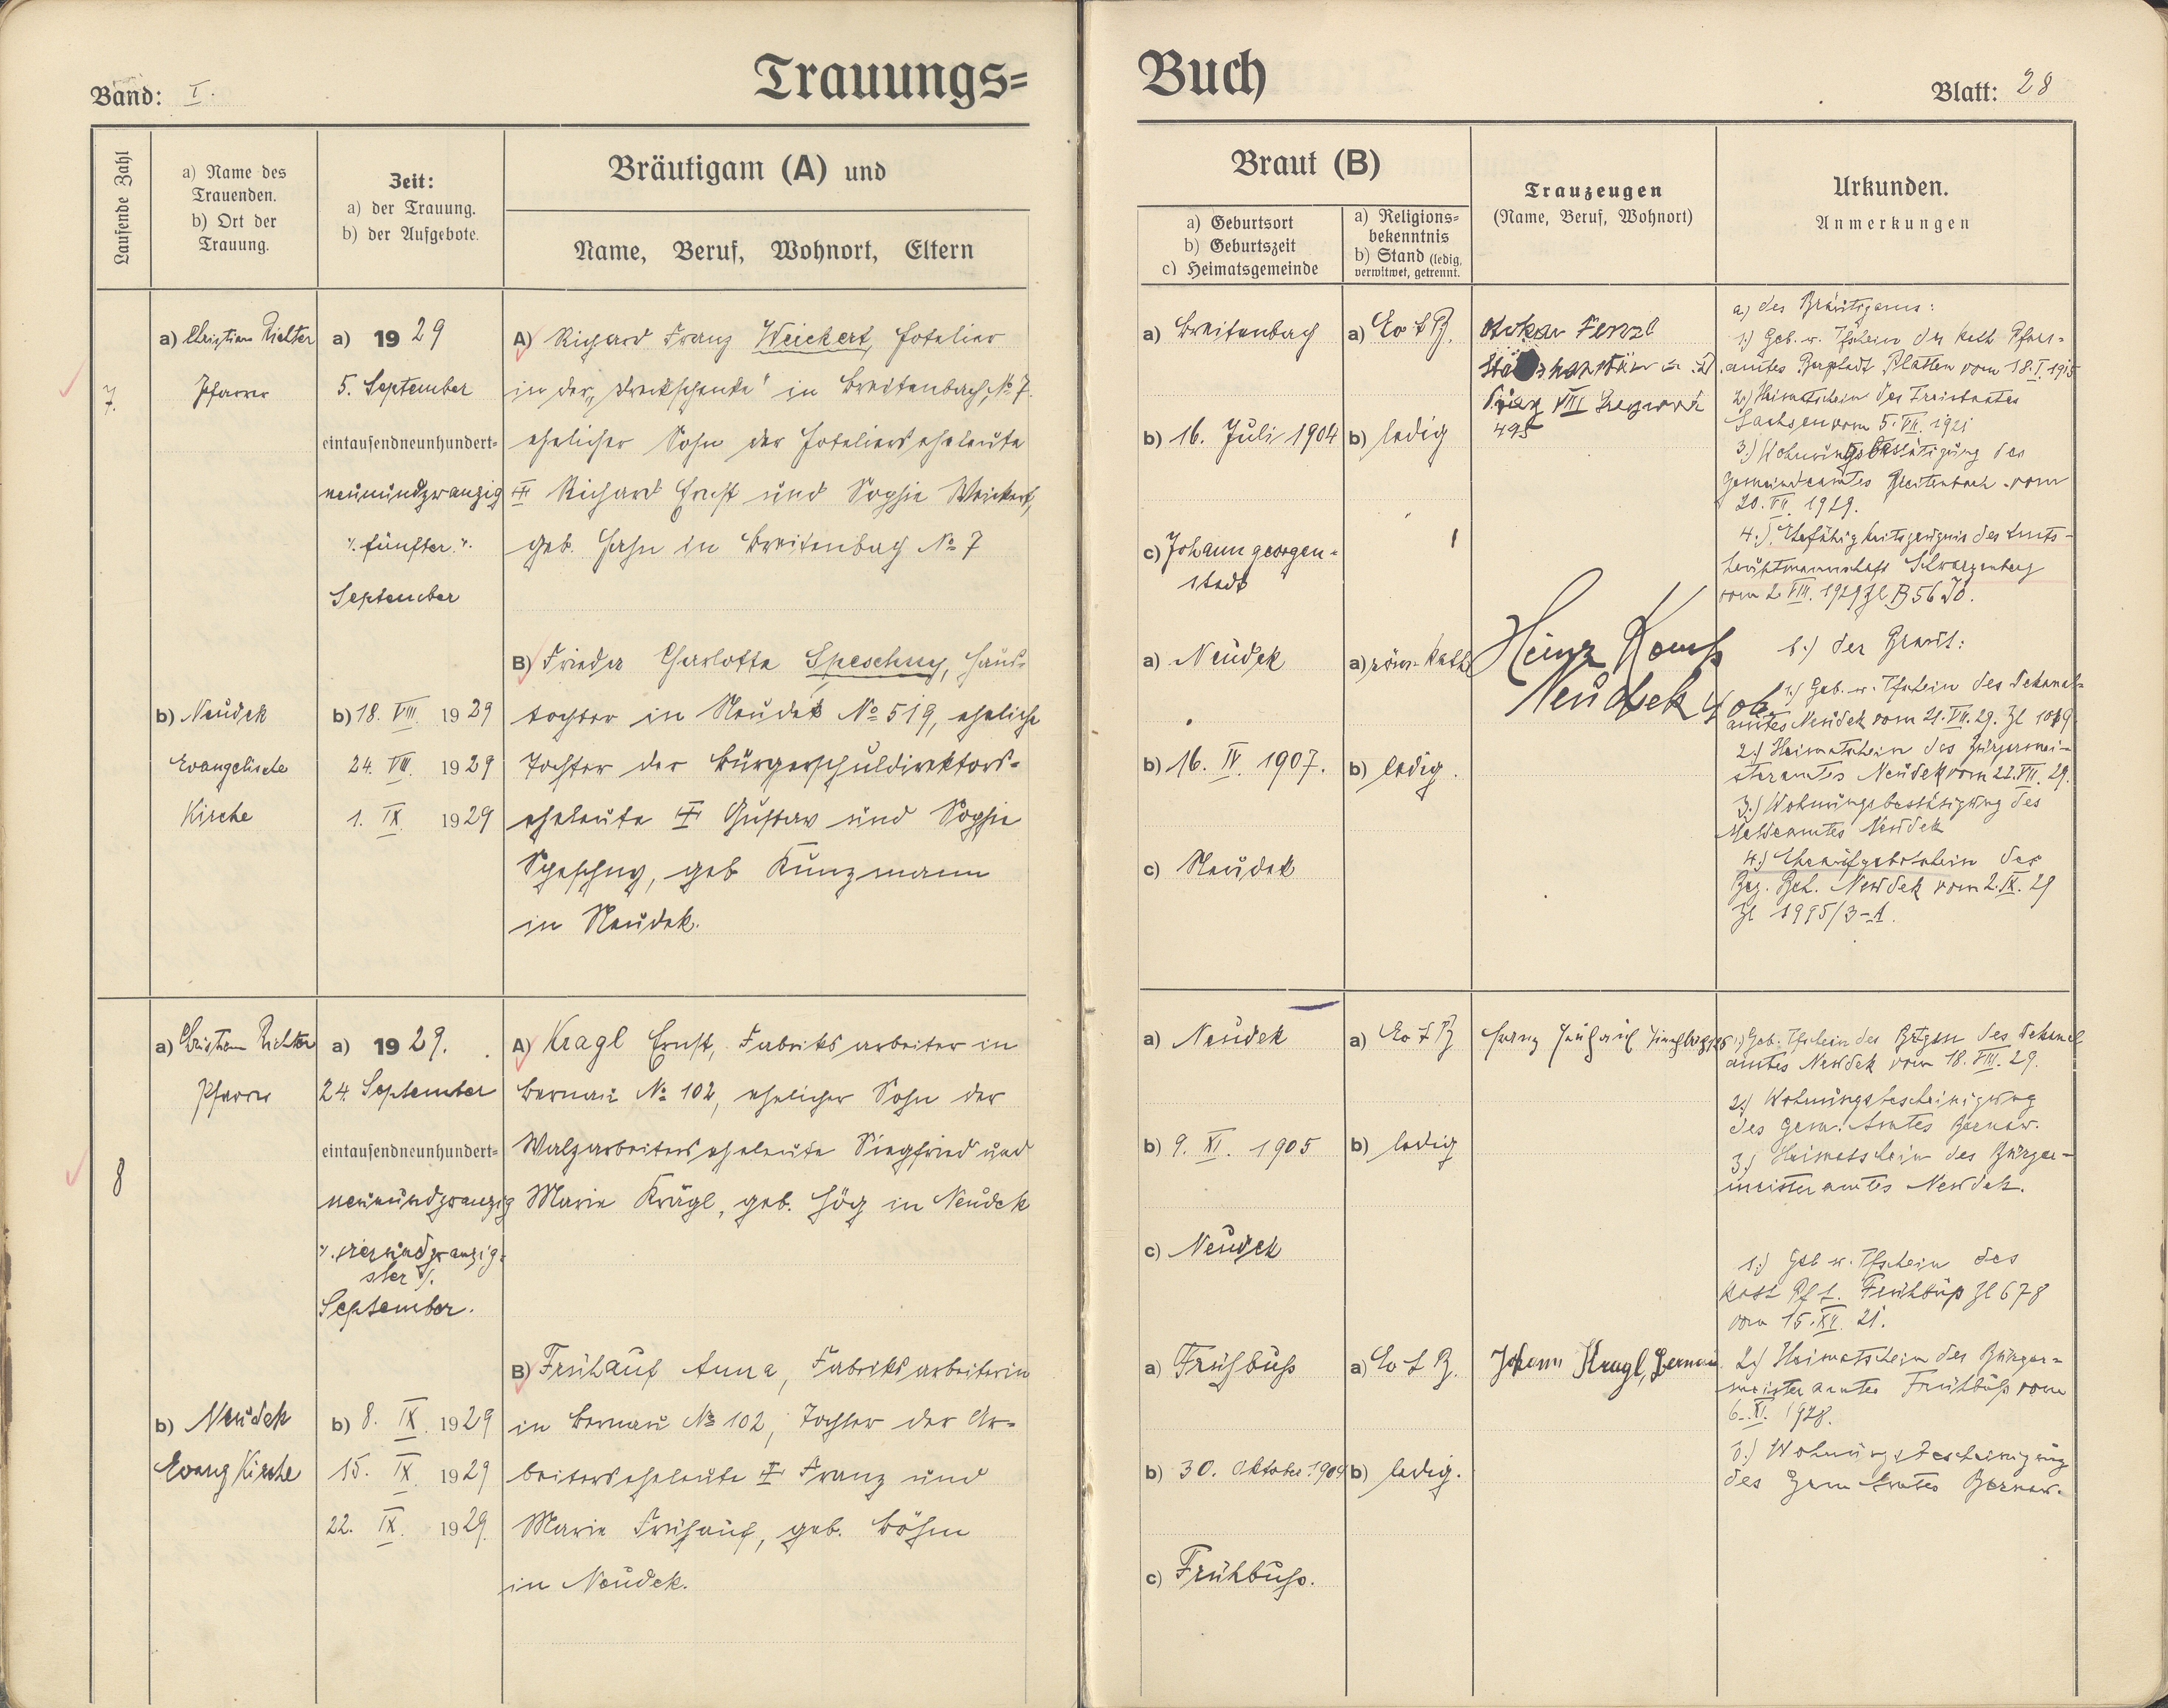 Trauungs=
Buch
Band: I.
Blatt: 28
Laufende Zahl
a) Name des
Trauenden.
b) Ort der
Trauung.
Zeit:
a) der Trauung.
b) der Aufgebote.
Bräutigam (A) und
Name, Beruf, Wohnort, Eltern
Braut (B)
a) Geburtsort
b) Geburtszeit
c) Heimatsgemeinde
a) Religions=
bekenntnis
b) Stand (ledig,
verwitwet, getrennt.
Trauzeugen
(Name, Beruf, Wohnort)
Urkunden.
Anmerkungen
7.
a) Christian Richter
Pfarrer
b) Neudek
Evangelische
Kirche
a) 1929
5. September
eintausendneunhundert=
neunundzwanzig
"/. fünfter "/.
September
b) 18. VIII. 1929
24. VIII. 1929
1. IX. 1929
A) Richard Franz Weickert, Hotelier
in der "Dreckschenke" in Breitenbach, No 7.
ehelicher Sohn der Hotelierseheleute
Richard Ernst und Sophie Weickert,
geb. Hahn in Breitenbach No 7
B) Frieda Charlotte Speschny, Haus=
tochter in Neudek No 519, eheliche
Tochter der Bürgerschuldirektors=
eheleute Gustav und Sophie
Speschny, geb Kunzmann
in Neudek.
a) Breitenbach
b) 16. Juli 1904
c) Johanngeorgen=
stadt
a) Neudek
b) 16. IV. 1907.
c) Neudek
a) Ev A B.
b) ledig
a) röm. kath
b) ledig.
VIII
495
Heinz
Neudek
a.) des Bräutigams:
1.) Geb. u. Tfschein des kath Pfarr=
amtes Bergstadt Platten vom 18. I. 1915
2.) Heimatschein des Freistaates
Sachsen vom 5. VII. 1921
3.) Wohnungsbestätigung des
Gemeindeamtes Breitenbach vom
20. VII. 1929.
4.) Ehefähigkeitszeugnis der Amts=
hauptmannschaft Schwarzenberg
vom 2. VIII. 1929 Zl B 56
b.) der Braut:
1.) Geb. u. Tfschein des Dekanal=
amtes Neudek vom 21. VII. 29. Zl
2.) Heimatschein des Bürgermei=
steramtes Neudek vom 22. VII. 29.
3.) Wohnungsbestätigung des
Meldeamtes Neudek
4.) Eheaufgebotschein der
Bez. Beh. Neudek vom 2. IX. 29
Zl 1995/3-A.
8
a) Christian Richter
Pfarrer
b) Neudek
Evang Kirche
a) 1929.
24. September
eintausendneunhundert=
neunundzwanzig
"/. vierundzwanzig=
ster "/.
September.
b) 8. IX. 1929
15. IX. 1929
22. IX. 1929
A) Kragl Ernst, Fabriksarbeiter in
Bernau No 102, ehelicher Sohn der
Walzarbeiterseheleute Siegfried und
Marie Krägl, geb. Hög in Neudek
B) Frühauf Anna, Fabriksarbeiterin
in Bernau No 102, Tochter der Ar=
beiterseheleute Franz und
Marie Frühauf, geb. Böhm
in Neudek.
a) Neudek
b) 9. XI. 1905
c) Neudek
a) Frühbuß
b) 30. Oktober 1909
c) Frühbuß.
a) Ev A B
b) ledig
a) Ev A B.
b) ledig.
Franz Frühauf
Johann Kragl, Bernau
1.) Geb. Tfschein des Brtgm des Dekanal
amtes Neudek vom 18. VIII. 29.
2.) Wohnungsbescheinigung
des Gem. Amtes Bernau.
3.) Heimatschein des Bürger=
meisteramtes Neudek.
1.) Geb u. Tfschein des
kath Pf A. Frühbuß Zl 678
vom 15. XII. 21.
2.) Heimatschein des Bürger=
meisteramtes Frühbuß vom
6. XI. 1928.
3.) Wohnungsbescheinigung
des Gem Amtes Bernau.